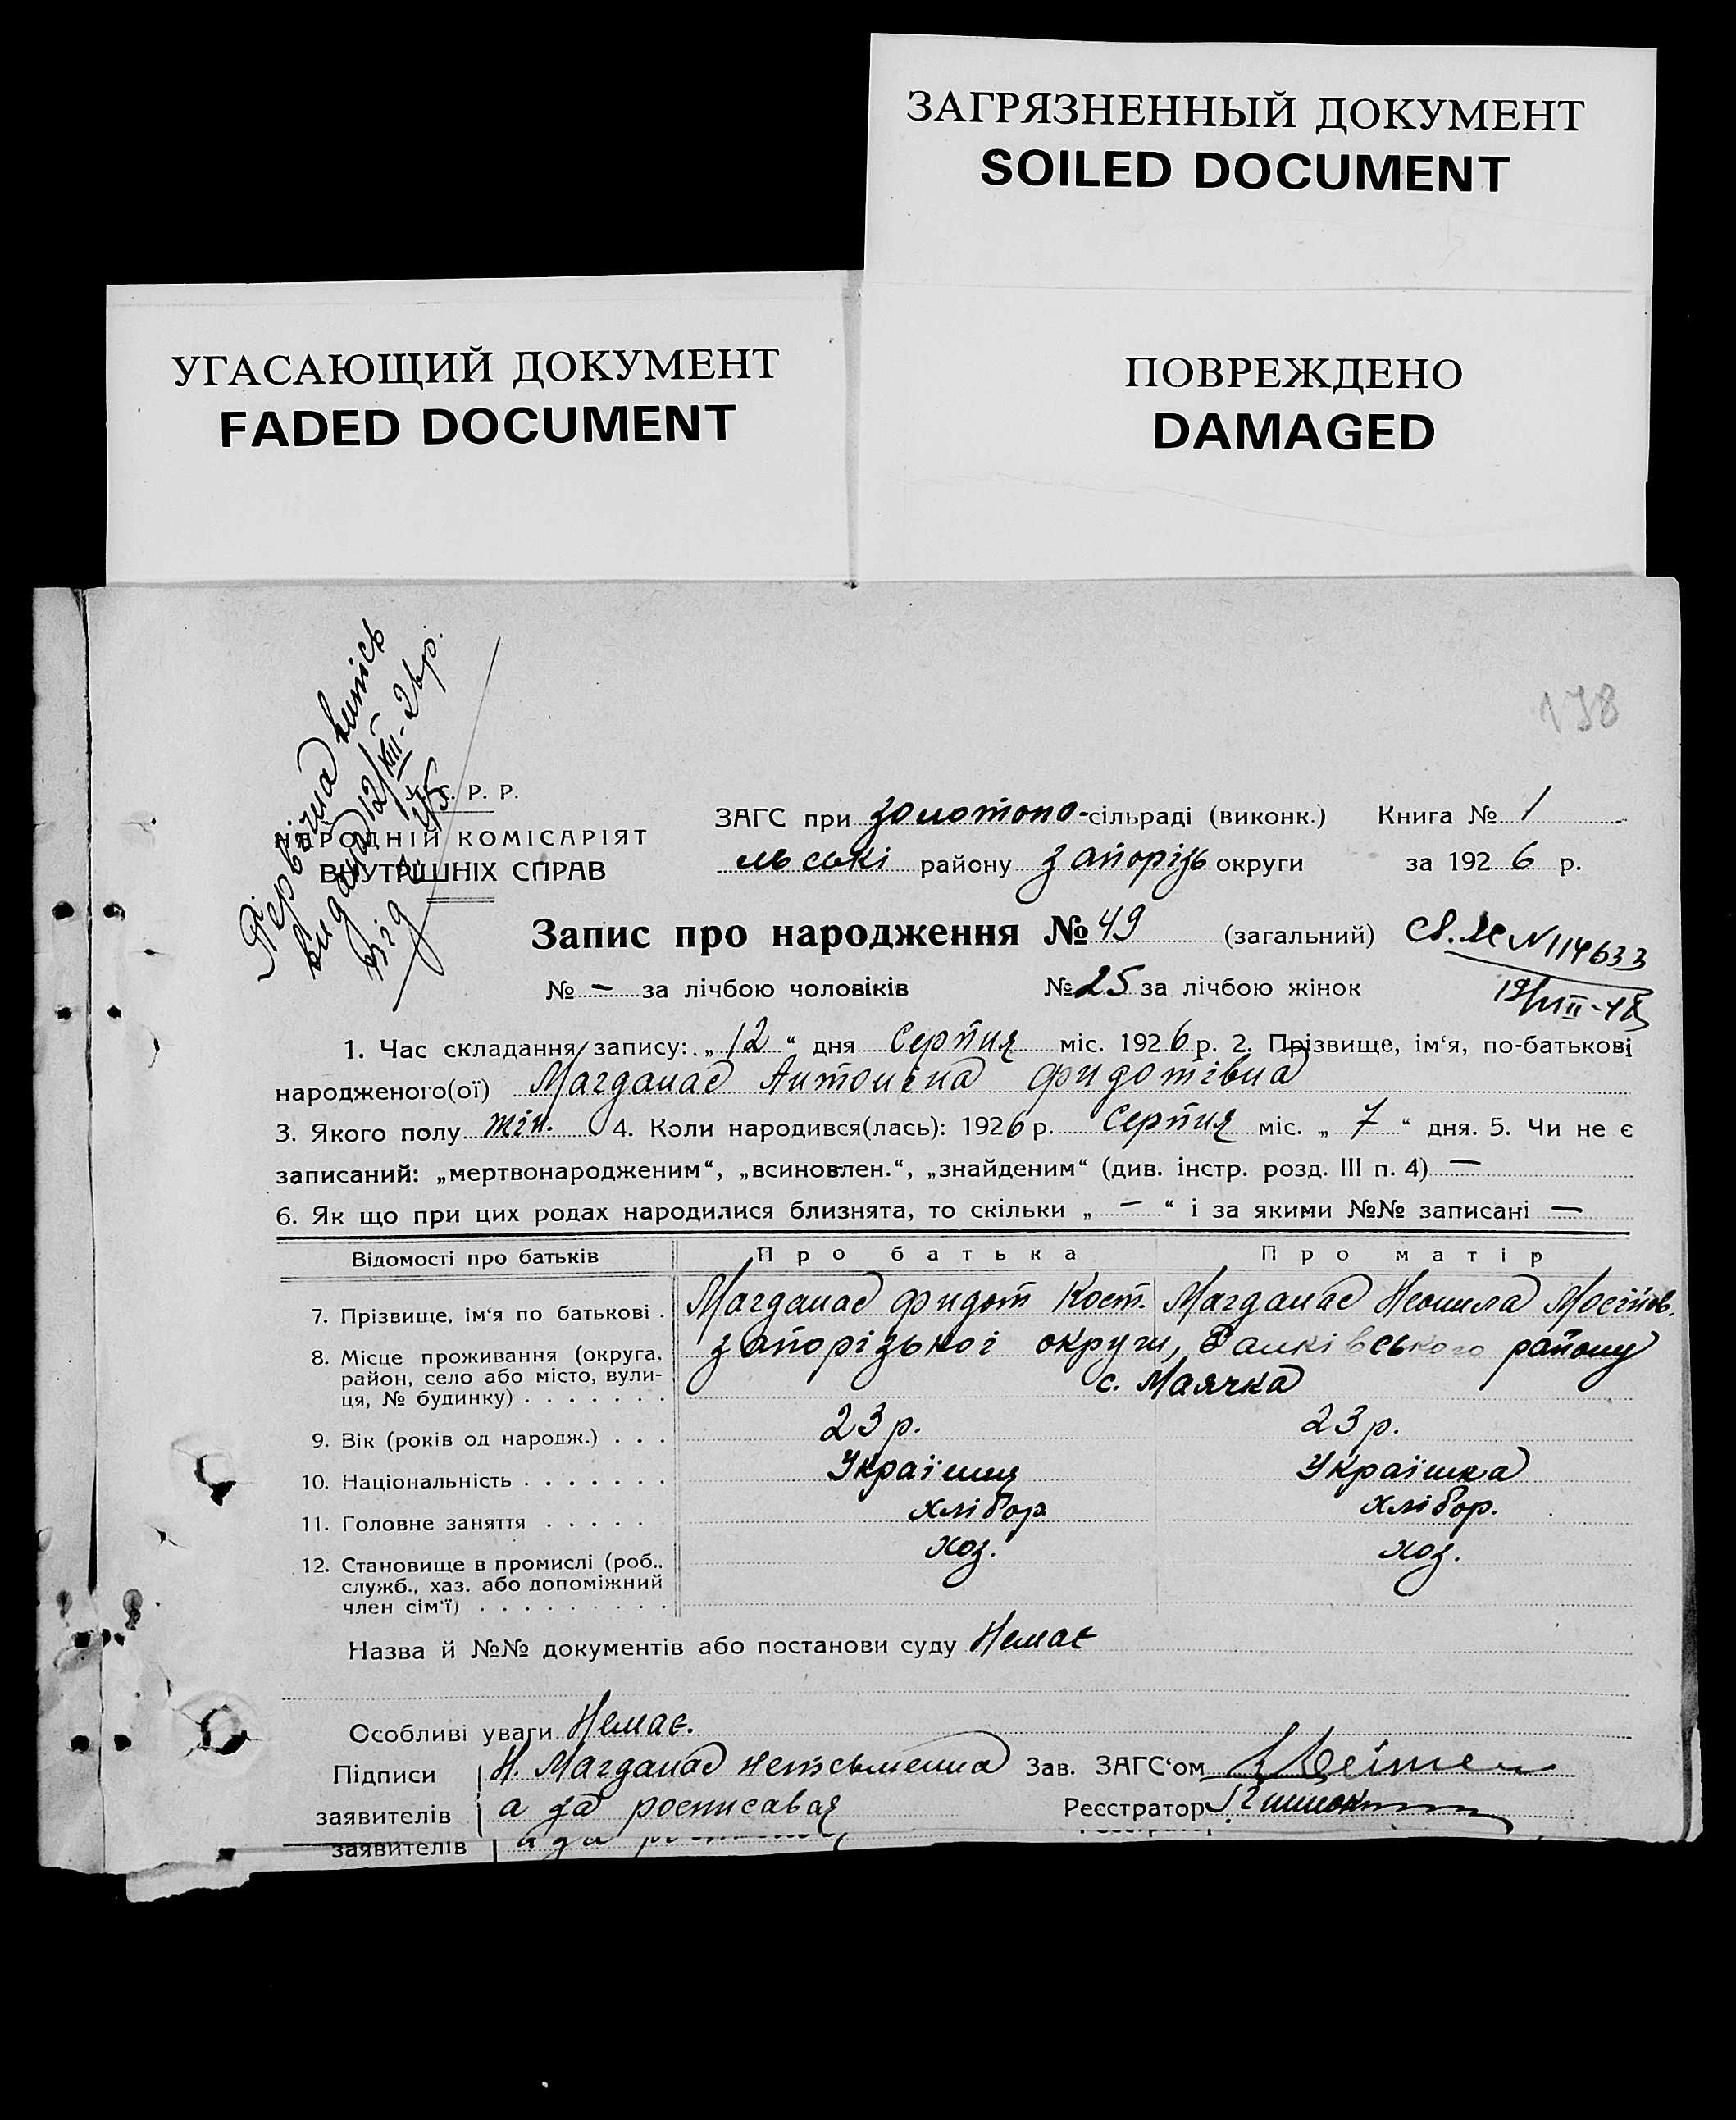 ЗАГРЯЗНЕННЫЙ ДОКУМЕНТ
SOILED DOCUMENT
УГАСАЮЩИЙ ДОКУМЕНТ
FADED DOCUMENT
ПОВРЕЖДЕНО
DAMAGED
138
Первісна випись
видана 12/VIII-26р.
під №
Р. Р.
НАРОДНІЙ КОМІСАРІЯТ
ВНУТРІШНІХ СПРАВ
ЗАГС при золотопо-сільраді (виконк.) Книга № 1
льські району Запорізь округи за 1926 р.
Запис про народження № 49 (загальний) №114633
№ — за лічбою чоловіків № 25 за лічбою жінок
1. Час складання запису: „12“ дня Серпня міс. 1926 р. 2. Прізвище, ім‘я, по-батькові
народженого(ої) Магдалас Антоніна Фидотівна
3. Якого полу жін. 4. Коли народився(лась): 1926 р. Серпня міс. „7“ дня. 5. Чи не є
записаний: „мертвонародженим“, „всиновлен.“, „знайденим“ (див. інстр. розд. III п. 4) —
6. Як що при цих родах народилися близнята, то скільки „—“ і за якими №№ записані —
Відомості про батьків Про батька Про матір
7. Прізвище, ім‘я по батькові . Магдалас Фидот Кост. Магдалас Неонила Мосіпов.
8. Місце проживання (округа, район, село або місто, вули-ця, № будинку) . . . . . . . Запорізької округи, району
с. Маячка
9. Вік (років од народж.) . . . 23 р. 23 р.
10. Національність . . . . . . . Українця Українка
11. Головне заняття . . . . . хлібор. хлібор.
12. Становище в промислі (роб., хоз. хоз.
служб., хаз. або допоміжний
член сім‘ї) . . . . . . . . .
Назва й №№ документів або постанови суду Немає
Особливі уваги Немає.
Підписи Н. Магдалас неписьменна Зав. ЗАГС‘ом
заявителів а за росписався Реєстратор
заявителів